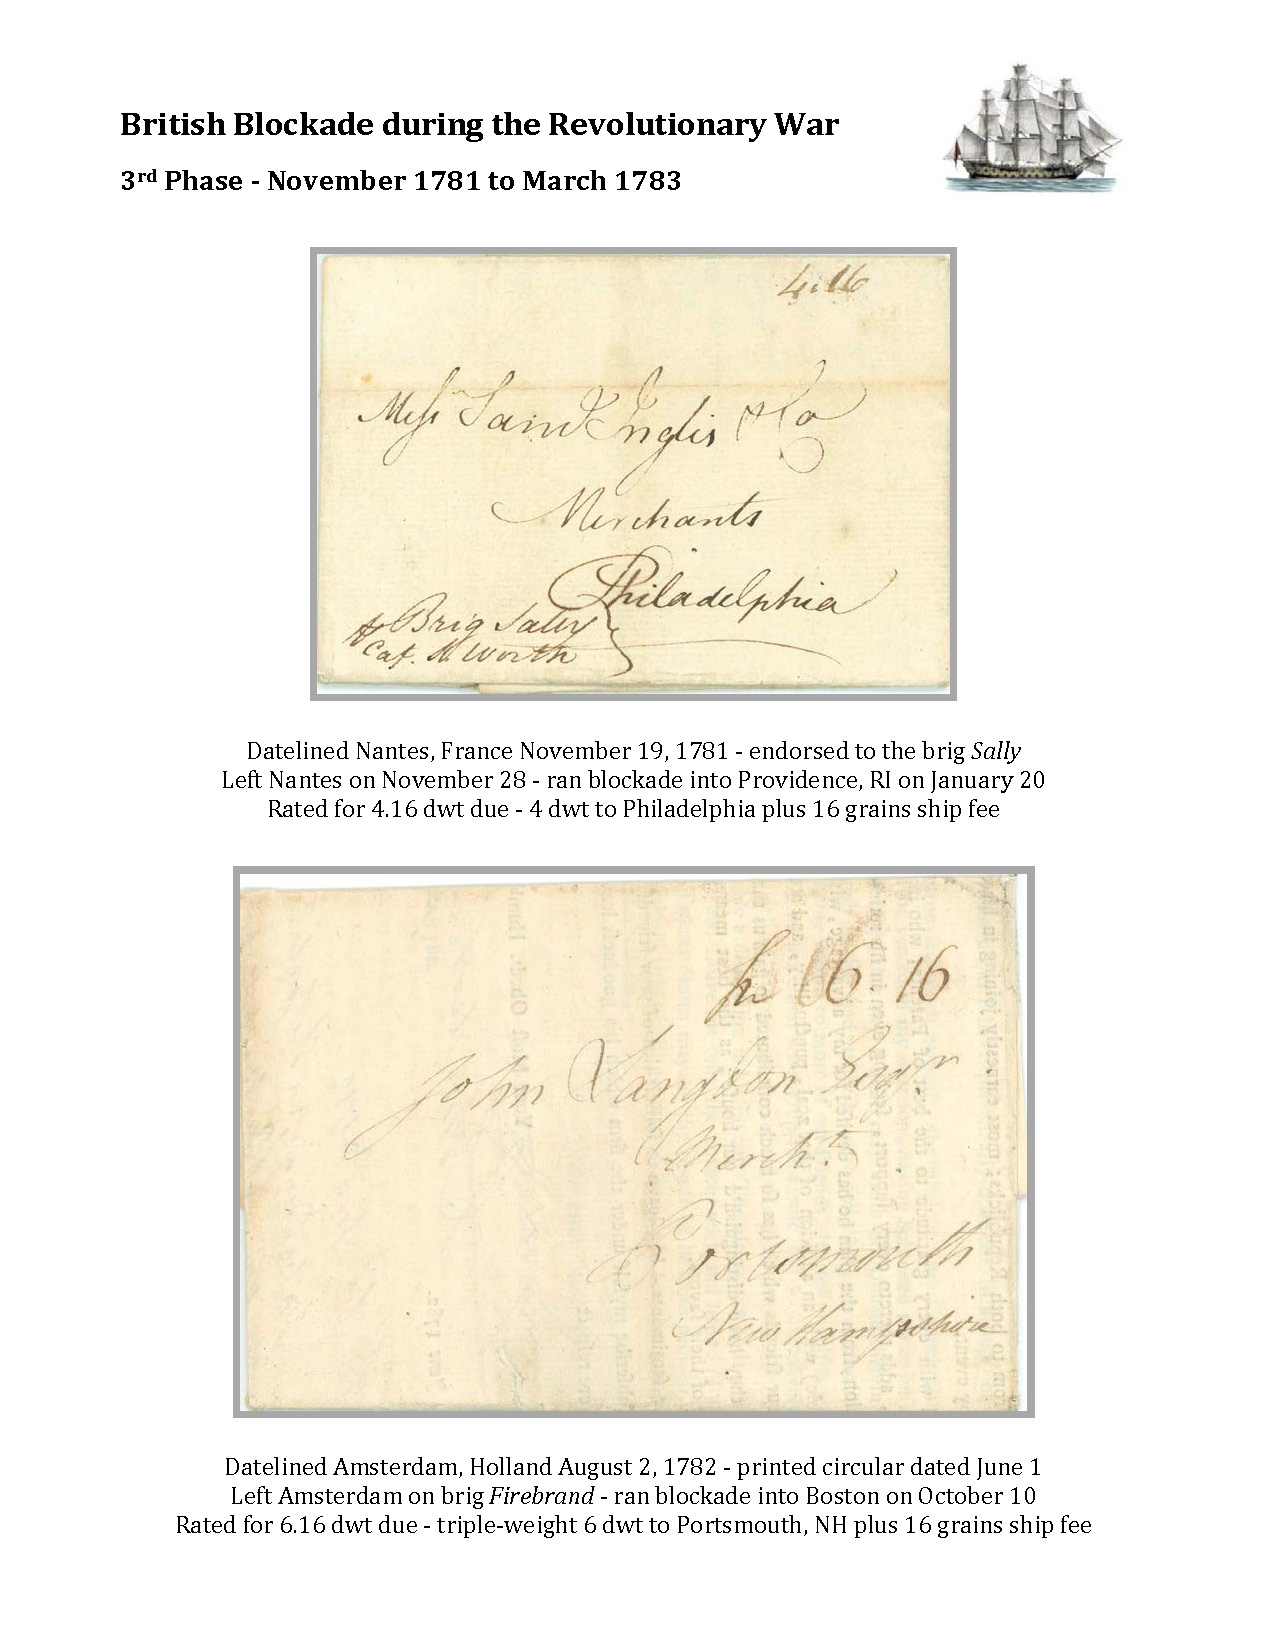 British Blockade during the Revolutionary War
3rd Phase - November 1781 to March 1783
4.16
Messrs Saml Inglis & Co
Merchants
Philadelphia
Brig Sally
Cap. N. Worth
Datelined Nantes, France November 19, 1781 - endorsed to the brig Sally
Left Nantes on November 28 - ran blockade into Providence, RI on January 20
Rated for 4.16 dwt due - 4 dwt to Philadelphia plus 16 grains ship fee
6 16
John Langdon Esqr
Mercht.
Portsmouth
New Hampshire
Datelined Amsterdam, Holland August 2, 1782 - printed circular dated June 1
Left Amsterdam on brig Firebrand - ran blockade into Boston on October 10
Rated for 6.16 dwt due - triple-weight 6 dwt to Portsmouth, NH plus 16 grains ship fee